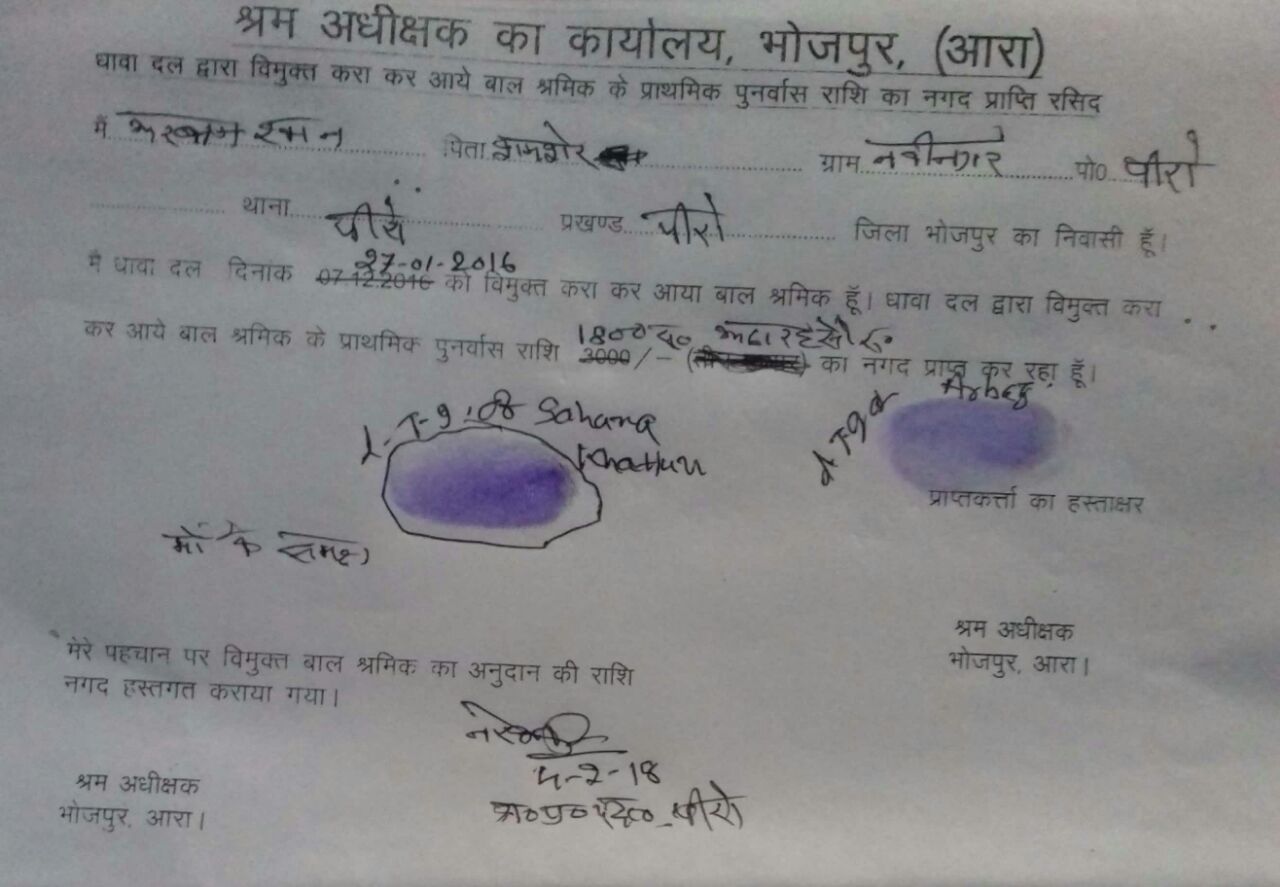 श्रम अधीक्षक का कार्यालय, भोजपुर, (आरा)
धावा दल द्वारा विमुक्त करा कर आये बाल श्रमिक के प्राथमिक पुनर्वास राशि का नगद प्राप्ति रसिद
मैं पिता ग्राम नवीनगर पो० पीरो
थाना पीरो प्रखण्ड पीरो जिला भोजपुर का निवासी हूँ।
27-01-2016
मै धावा दल दिनांक 07.12.2016 को विमुक्त करा कर आया बाल श्रमिक हूँ। धावा दल द्वारा विमुक्त करा
1800 रु० अठारह सौ रु०
कर आये बाल श्रमिक के प्राथमिक पुनर्वास राशि 3000/- का नगद प्राप्त कर रहा हूँ।
L.T.g. of Sahana
Khatun
L.T.g of Arbaz
प्राप्तकर्त्ता का हस्ताक्षर
माँ के समक्ष
श्रम अधीक्षक
भोजपुर, आरा।
मेरे पहचान पर विमुक्त बाल श्रमिक का अनुदान की राशि
नगद हस्तगत कराया गया।
5-2-18
पीरो
श्रम अधीक्षक
भोजपुर, आरा।